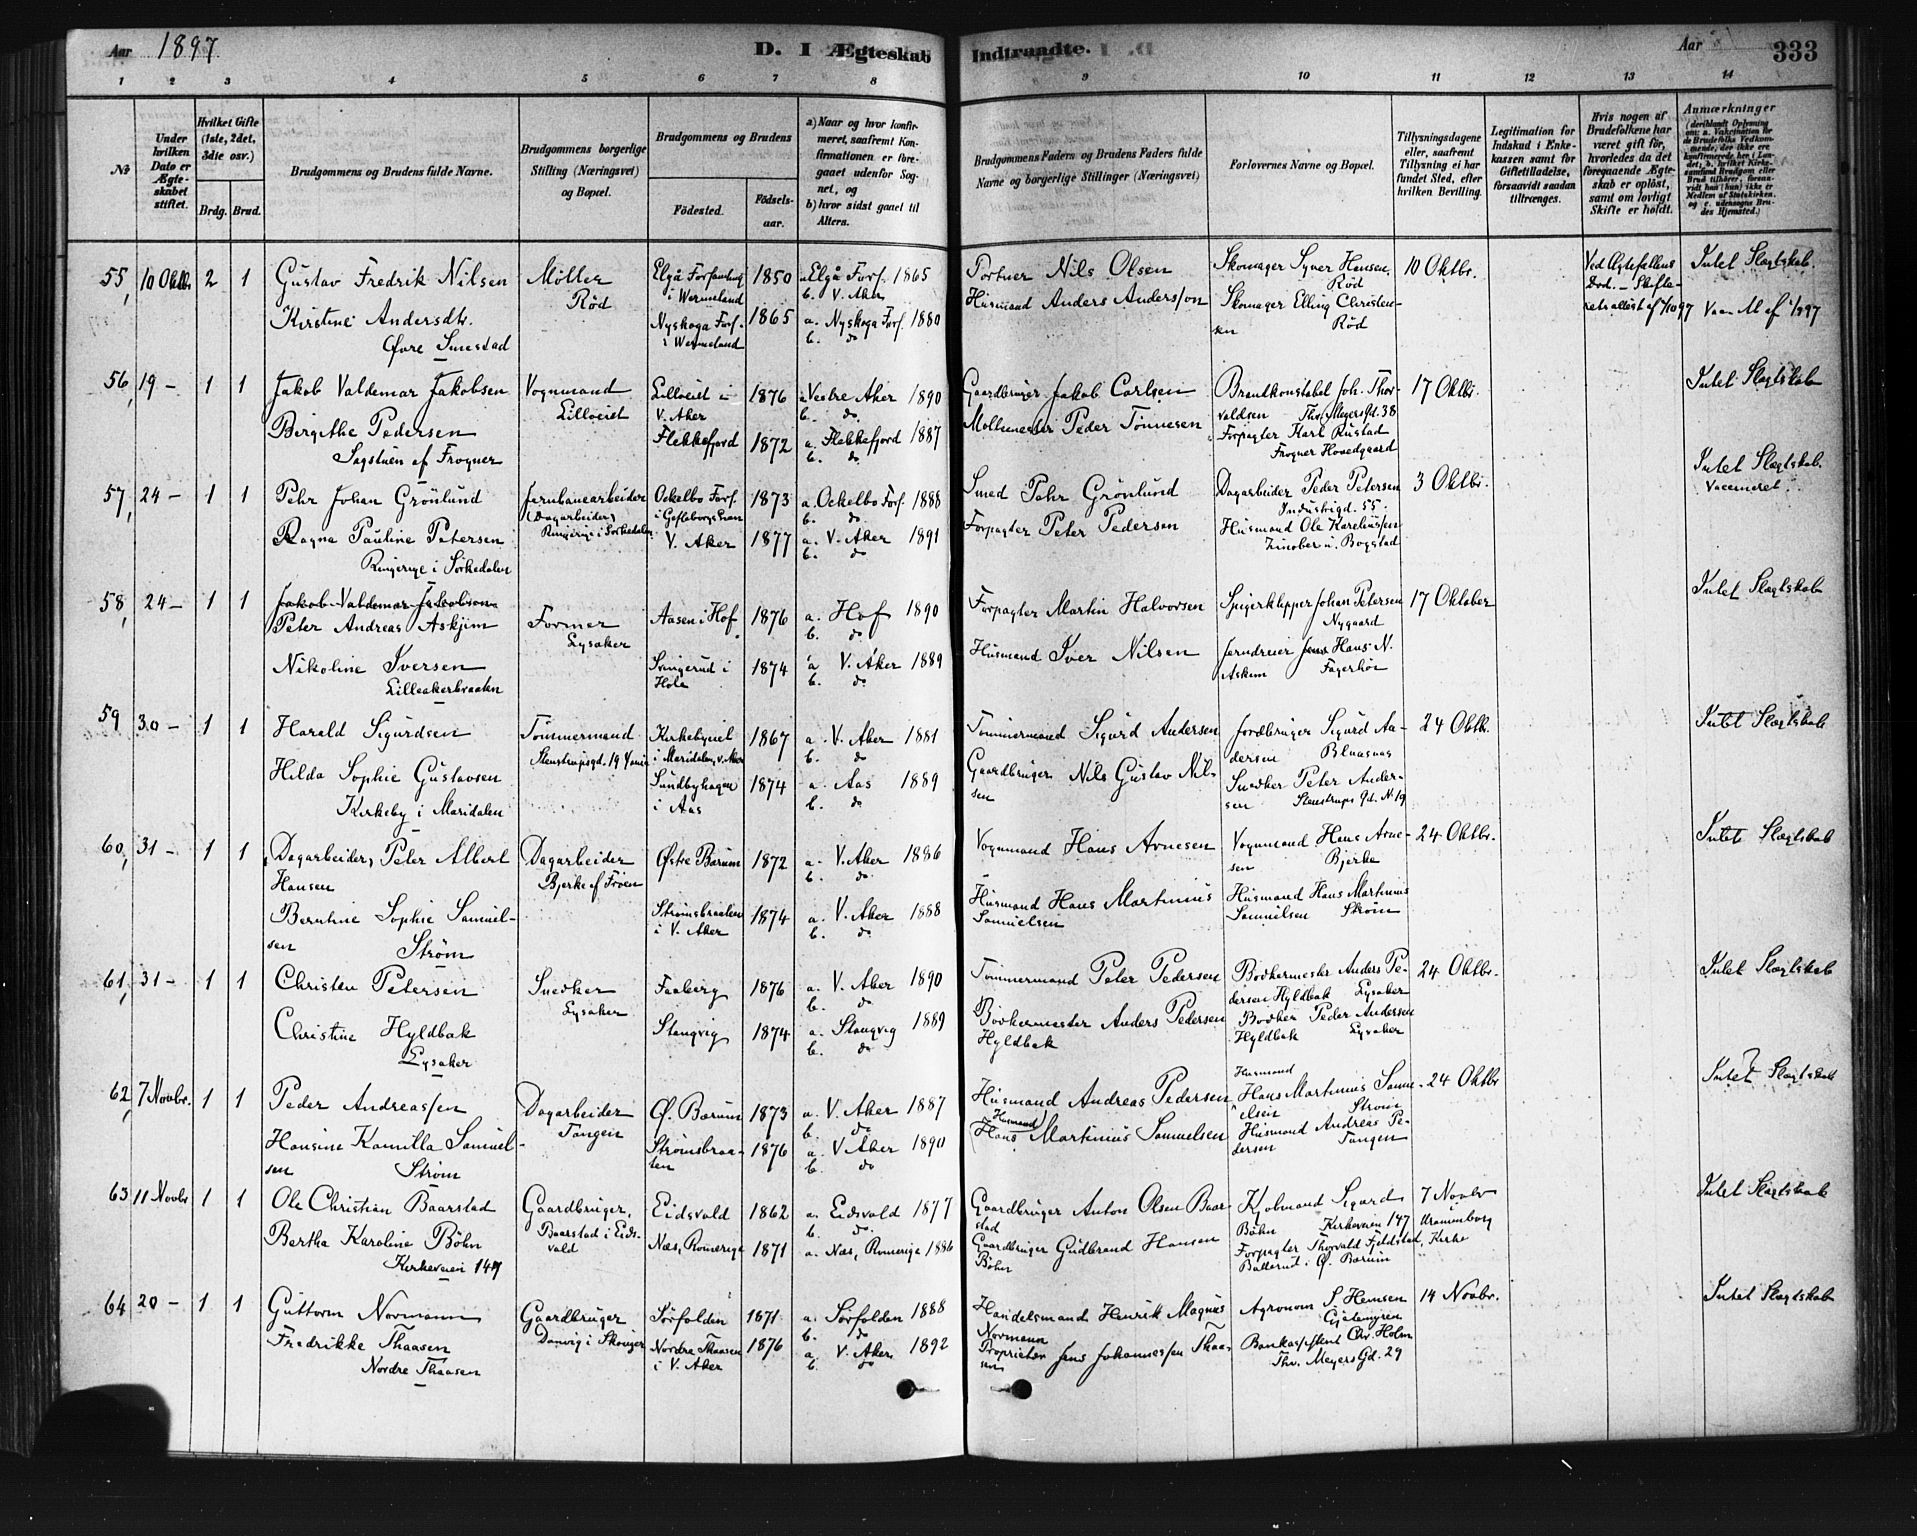 Aar 1897 D. I Ægteskab Indtraadte. Aar 333
1 2 3 4 5 6 7 8 9 10 11 12 13 14
№
Under hvilken Dato er Ægteskabet stiftet.
Hvilket Gifte (1ste, 2det, 3die osv.)
Brdg. Brud.
Brudgommens og Brudens fulde Navne.
Brudgommens borgerlige Stilling (Næringsvei) og Bopæl.
Brudgommens og Brudens
Fødested. Fødselsaar.
a) Naar og hvor konfirmeret, saafremt Konfirmationen er foregaaet udenfor Sognet, og
b) hvor sidst gaaet til Alters.
Brudgommens Faders og Brudens Faders fulde Navne og borgerlige Stillinger (Næringsvei)
Forlovernes Navne og Bopæl.
Tillysningsdagene eller, saafremt Tillysning ei har fundet Sted, efter hvilken Bevilling.
Legitimation for Indskud i Enkekassen samt for Giftetilladelse, forsaavidt saadan tiltrænges.
Hvis nogen af Brudefolkene har været gift før, hvorledes da det foregaaende Ægteskab er opløst, samt om lovligt Skifte er holdt.
Anmærkninger
55, 10 Oktbr. 2 1 Gustav Fredrik Nilsen Møller Rød Elgå Forsamling i Wermeland 1850 a. Elgå Fors. 1865 b. V. Aker Portner Nils Olsen Skomager Syver Hansen, Rød 10 Oktbr. Ved Ægtefellens Død. – Skifteretsattest af 7/10 97 Intet Slægtskab.
Kirstine Andersdtr. Øvre Smestad Nyskoga Fors. i Wermeland 1865 a. Nyskoga Fors. 1880 b. do Husmand Anders Andersson Skomager Elling Christensen Rød
56, 19 – 1 1 Jakob Valdemar Jakobsen Vognmand Lilloeiet Lilloeiet i V. Aker 1876 a. Vestre Aker 1890 b. do Gaardbruger Jakob Carlsen Brandkonstabel Joh. Thorvaldsen Thv. Meyers Gd. 38 17 Oktbr. Intet Slægtskab
Birgithe Pedersen Sagstuen af Frogner Flekkefjord 1872 a. Flekkefjord 1887 b. do Møllemester Peder Tönnesen Forpagter Karl Rustad Frogner Hovedgaard
57, 24 – 1 1 Pehr Johan Grönlund Jernbanearbeider (Dagarbeider) Ringerige i Sørkedalen Ockelbo Fors. i Gefleborgs Læn 1873 a. Ockelbo Fors. 1888 b. do Smed Pehr Grönlund Dagarbeider Peder Petersen Industrigd. 55. 3 Oktbr. Intet Slægtskab. Vaccineret.
Ragna Pauline Petersen Ringerige i Sørkedalen V. Aker 1877 a. V. Aker 1891 b. do Forpagter Peter Pedersen Husmand Ole Kareliussen Zinober u. Bogstad
58, 24 – 1 1 Jakob Valdemar Jakobsen Peter Andreas Askjim Former Lysaker Aasen i Hof 1876 a. Hof 1890 b. do Forpagter Martin Halvorsen Spigerklipper Johan Petersen Nygaard 17 Oktober Intet Slægtskab
Nikoline Iversen Lilleakerbraaten Svingerud i Hole 1874 a. V. Aker 1889 b. do Husmand Iver Nilsen Jerndreier Jens Hans N. Askim Fagerhøi
59 30 – 1 1 Harald Sigurdsen Tömmermand Stenstrupsgd. 19 Kirkebyeiet i Maridalen, V. Aker 1867 a. V. Aker 1881 b. do Tömmermand Sigurd Andersen Jordbruger Sigurd Andersen Blaasaas 24 Oktbr. Intet Slægtskab
Hilda Sophie Gustavsen Kirkeby i Maridalen Sundbyhagen i Aas 1874 a. Aas 1889 b. do Gaardbruger Nils Gustav Nilsen Snedker Peter Andersen Stenstrups Gd. N. 19
60, 31 – 1 1 (Dagarbeider) Peter Albert Hansen Dagarbeider Bjerke af Frøen Østre Bærum 1872 a. V. Aker 1886 b. do Vognmand Hans Arnesen Vognmand Hans Arnesen Bjerke 24 Oktbr. Intet Slægtskab
Berntine Sophie Samuelsen Strøm Strømsbraaten i V. Aker 1874 a. V. Aker 1888 b. do Husmand Hans Martinius Samuelsen Husmand Hans Martinius Samuelsen Strøm
61, 31 – 1 1 Christen Petersen Snedker Lysaker Faaberg 1876 a. V. Aker 1890 b. do Tömmermand Peter Pedersen Bødkermester Anders Pedersen Hyldbak Lysaker 24 Oktbr. Intet Slægtskab
Christine Hyldbak Lysaker Stangvig 1874 a. Stangvig 1889 b. do Bødkermester Anders Pedersen Hyldbak Bødker Peder Andersen Hyldbak Lysaker
62, 7 Novbr. 1 1 Peder Andreassen Dagarbeider Tangen Ø. Bærum 1873 a. V. Aker 1887 b. do Husmand Andreas Pedersen Husmand Hans Martinius Samuelsen Strøm 24 Oktbr Intet Slægtskab
Hansine Kamilla Samuelsen Strøm Strømsbraaten 1876 a. V. Aker 1890 b. do (Husmand) Hans Martinius Samuelsen Husmand Andreas Pedersen Tangen
63 11 Novbr 1 1 Ole Christian Baarstad Gaardbruger, Baarstad i Eidsvald Eidsvald 1862 a. Eidsvald 1877 b. do. Gaardbruger Anton Olsen Baarstad Kjøbmand Sigurd Bøhn Kirkeveien 147 7 Novbr Uranienborg Kirke Intet Slægtskab
Bertha Karoline Bøhn Kirkeveien 147 Næs, Romerige 1871 a. Næs, Romerige 1886 Gaardbruger Gudbrand Hansen Bøhn Forpagter Thorvald Fjeldstad, Ballerud i Ø. Bærum
64 20 – 1 1 Guttorm Normann Gaardbruger Danvig i Skouger Sørfolden 1871 a. Sørfolden 1888 b. do Handelsmand Henrik Magnus Normann Agronom S. Hemsen Gjetemyren 14 Novbr. Intet Slægtskab
Fredrikke Thaasen Nordre Thaasen Nordre Thaasen i V. Aker 1876 a. V. Aker 1892 b. do Proprietær Jens Johannessen Thaasen Bankassistent Chr. Holm Thv. Meyers Gd. 29